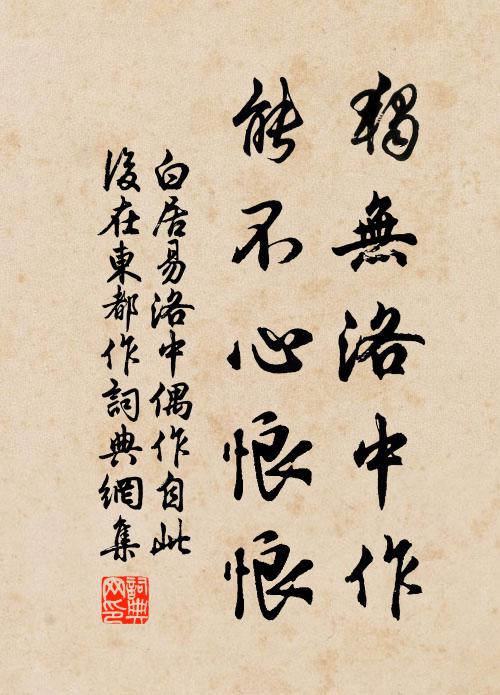 獨無洛中作
能不心恨恨
白居易洛中偶作自此
後在東都作詞典網集
詞典
网印